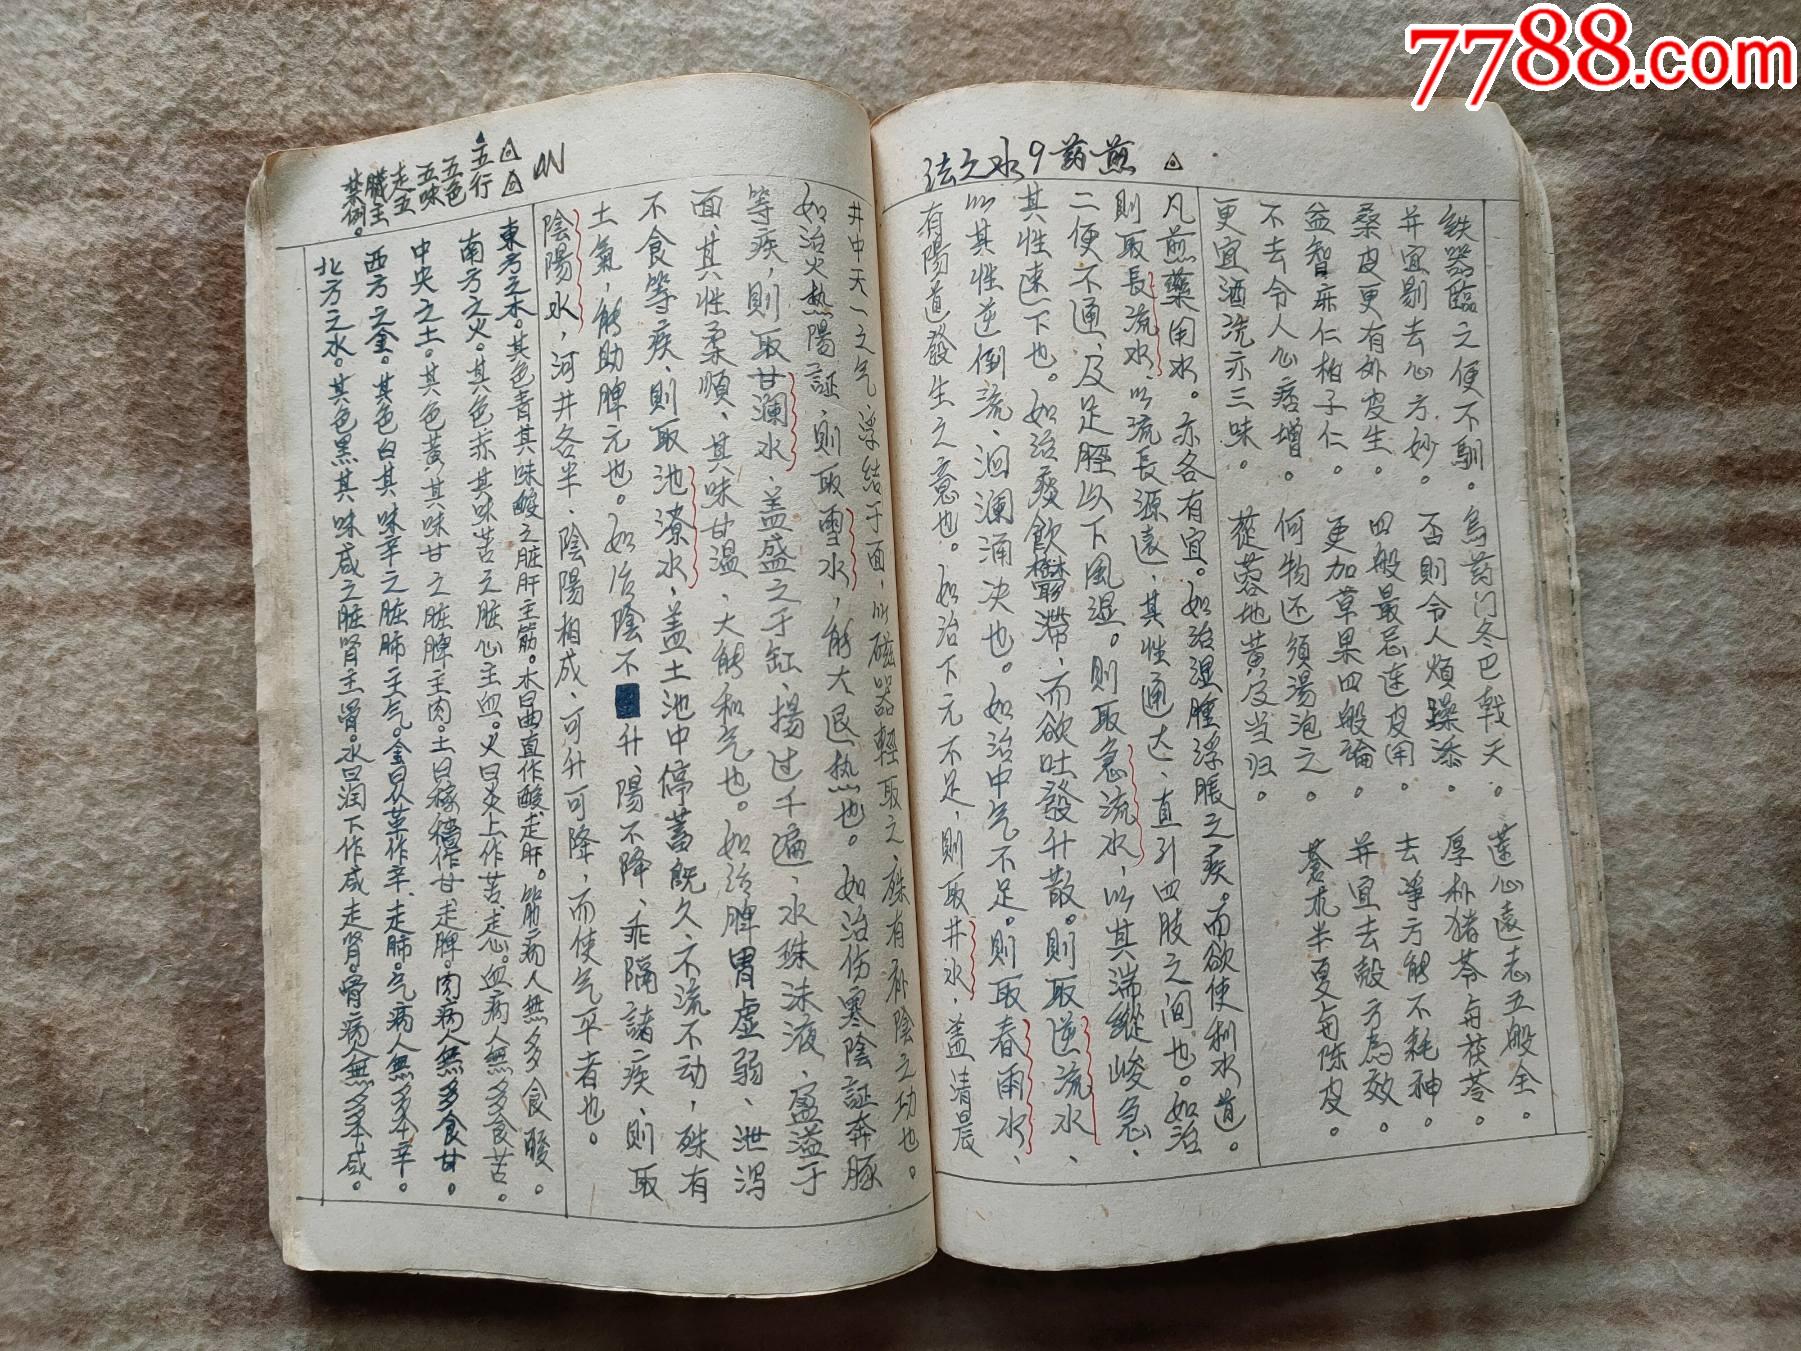 7788.com
△煎药9水之法
鉄器臨之便不馴。烏药门冬巴戟天。蓮心遠志五般全。
并宜剔去心方妙。否則令人煩躁添。厚朴猪苓与茯苓。
桑皮更有外皮生。四般最忌連皮用。去淨方能不耗神。
益智麻仁柏子仁。更加草果四般論。并宜去殻方為效。
不去令人心痞增。何物还須湯泡之。蒼朮半夏与陈皮。
更宜酒洗亦三味。蓯蓉地黄及当归。
凡煎藥用水。亦各有宜。如治湿腫浮脹之疾。而欲使利水道。
則取長流水、以流長源遠、其性通达、直引四肢之间也。如治
二便不通、及足脛以下風湿。則取急流水、以其湍縱峻急、
其性速下也。如治痰飲欝滯、而欲吐發升散。則取逆流水、
以其性逆倒流、洄澜涌决也。如治中气不足。則取春雨水、
有陽道發生之意也。如治下元不足，則取井水，盖清晨
井中天一之气，浮結于面，以磁器輕取之，殊有补陰之功也。
如治火热陽証，則取雪水，能大退热也。如治伤寒陰証奔豚
等疾，則取甘澜水，盖盛之于缸，揚过千遍，水珠沫液，盈溢于
面、其性柔順、其味甘温、大能和气也。如治脾胃虚弱、泄瀉
不食等疾、則取池潦水，盖土池中停蓄既久、不流不动，殊有
土氣，能助脾元也。如治陰不升、陽不降、乖隔諸疾、則取
陰陽水，河井各半、陰陽相成、可升可降，而使气平者也。
△△ON
△五行
五色
五味
走五
臓主
禁例。
東方之木。其色青其味酸之脏肝主筋。木曰曲直作酸、走肝。筋病人無多食酸。
南方之火。其色赤其味苦之脏心主血。火曰炎上作苦、走心。血病人無多食苦。
中央之土。其色黄其味甘之脏脾主肉。土曰稼穡作甘、走脾。肉病人無多食甘。
西方之金。其色白其味辛之脏肺主气。金曰从革作辛、走肺。气病人無多本辛。
北方之水。其色黑其味咸之脏肾主骨。水曰润下作咸走肾。骨病人無多本咸。